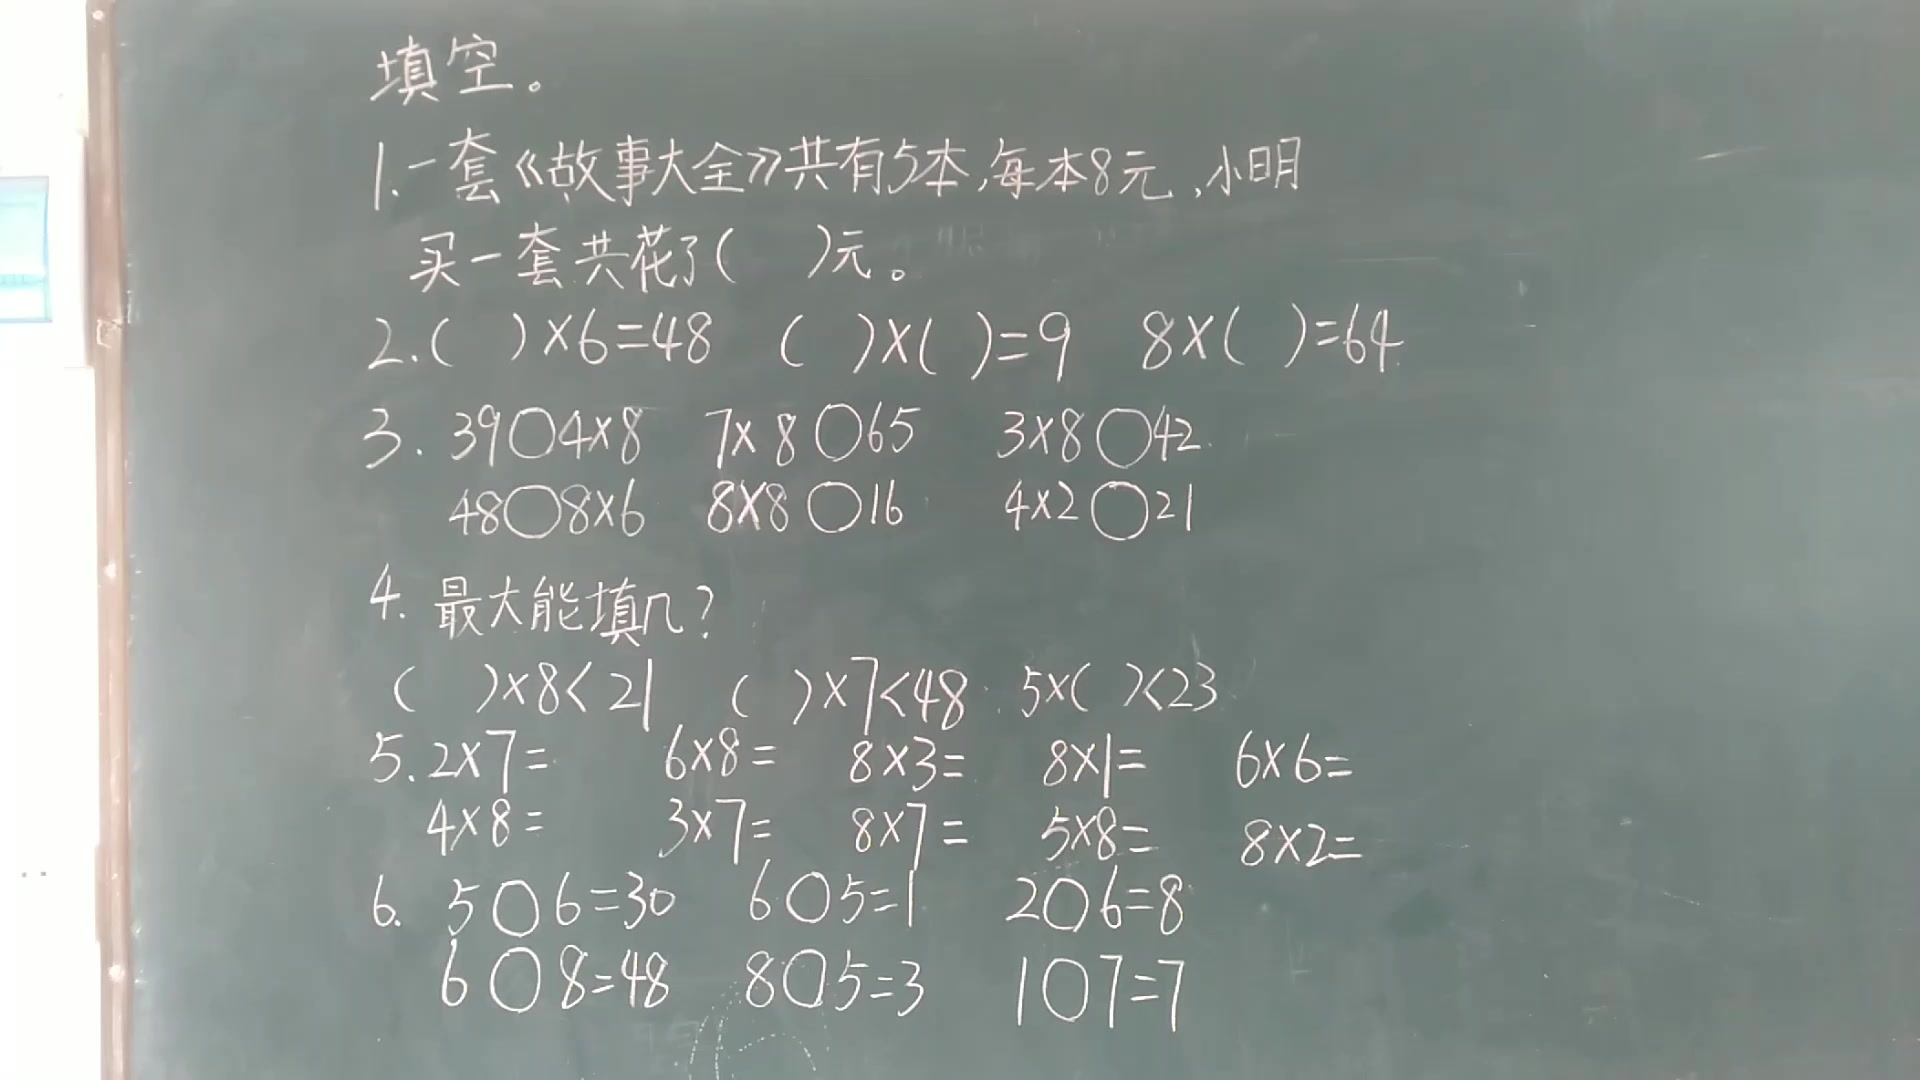 填空。
1.一套《故事大全》共有5本,每本8元,小明
买一套共花了(  )元。
2.(  )×6=48  (  )×(  )=9  8×(  )=64
3. 39○4×8  7×8○65  3×8○42
48○8×6  8×8○16  4×2○21
4. 最大能填几?
(  )×8<21  (  )×7<48  5×(  )<23
5. 2×7=  6×8=  8×3=  8×1=  6×6=
4×8=  3×7=  8×7=  5×8=  8×2=
6. 5○6=30  6○5=1  2○6=8
6○8=48  8○5=3  1○7=7